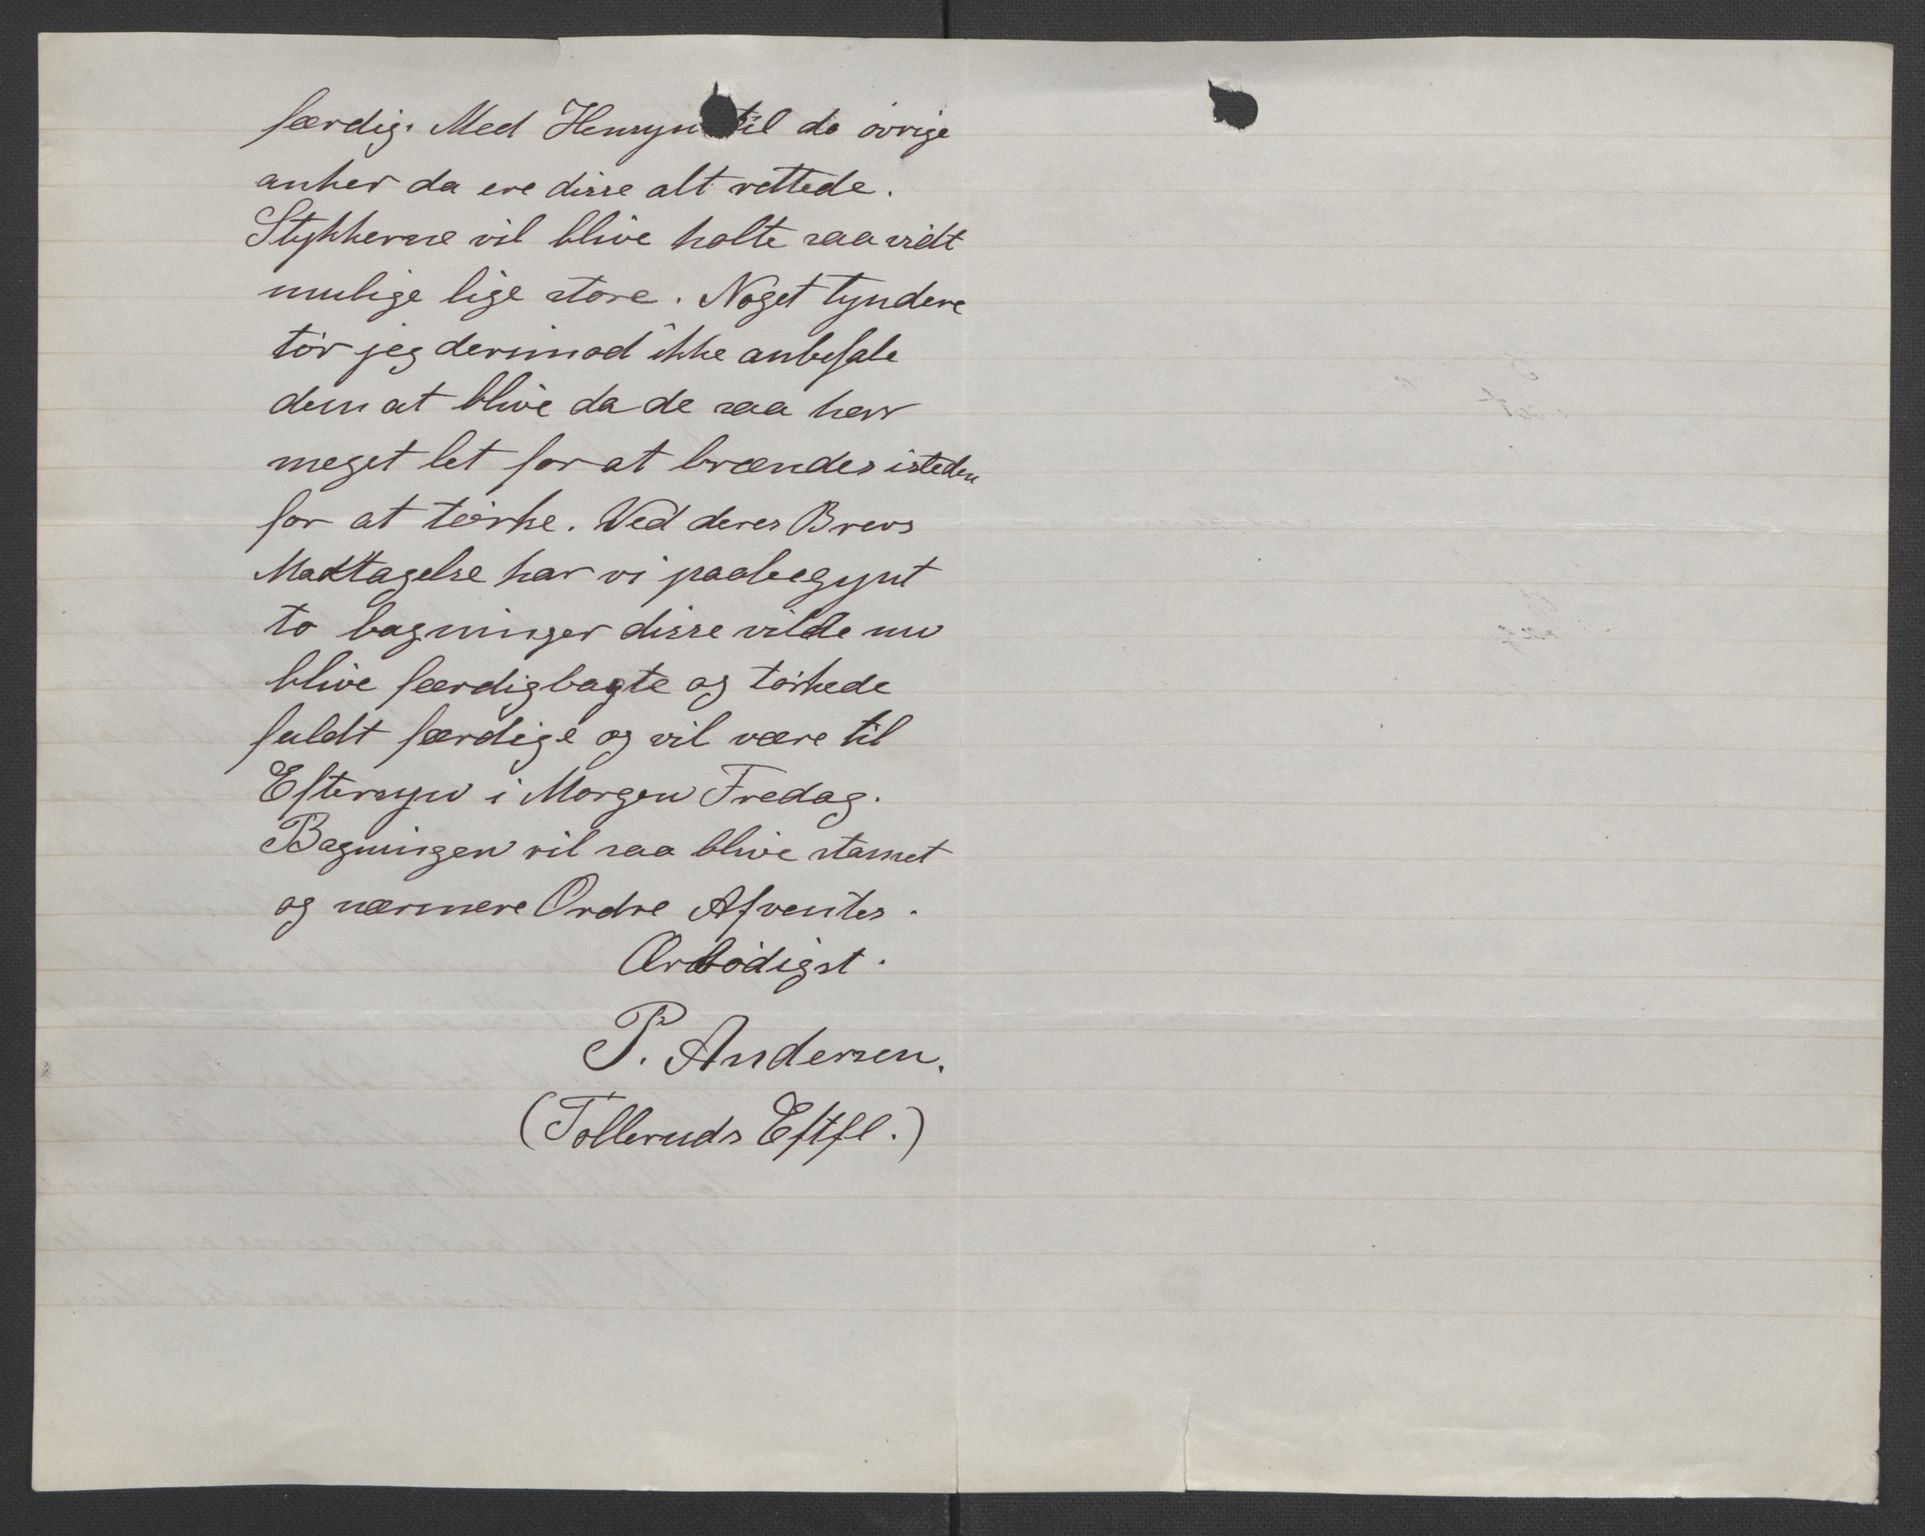 færdig. Med Hensyn til de øvrige
anker da ere disse alt rettede.
Stykkerne vil blive holte saa vidt
mulige lige store. Noget tyndere
tør jeg derimod ikke anbefale
dem at blive da de saa har
meget let for at brændes isteden
for at tørke. Ved deres Brevs
Modtagelse har vi paabegynt
to bagninger disse vilde nu
blive færdigbagte og tørkede
fuldt færdige og vil være til
Eftersyn i Morgen Fredag.
Bagningen vil saa blive stanset
og nærmere Ordre Afventes.
Ærbødigst.
P. Andersen.
(Tolleruds Eftfl.)